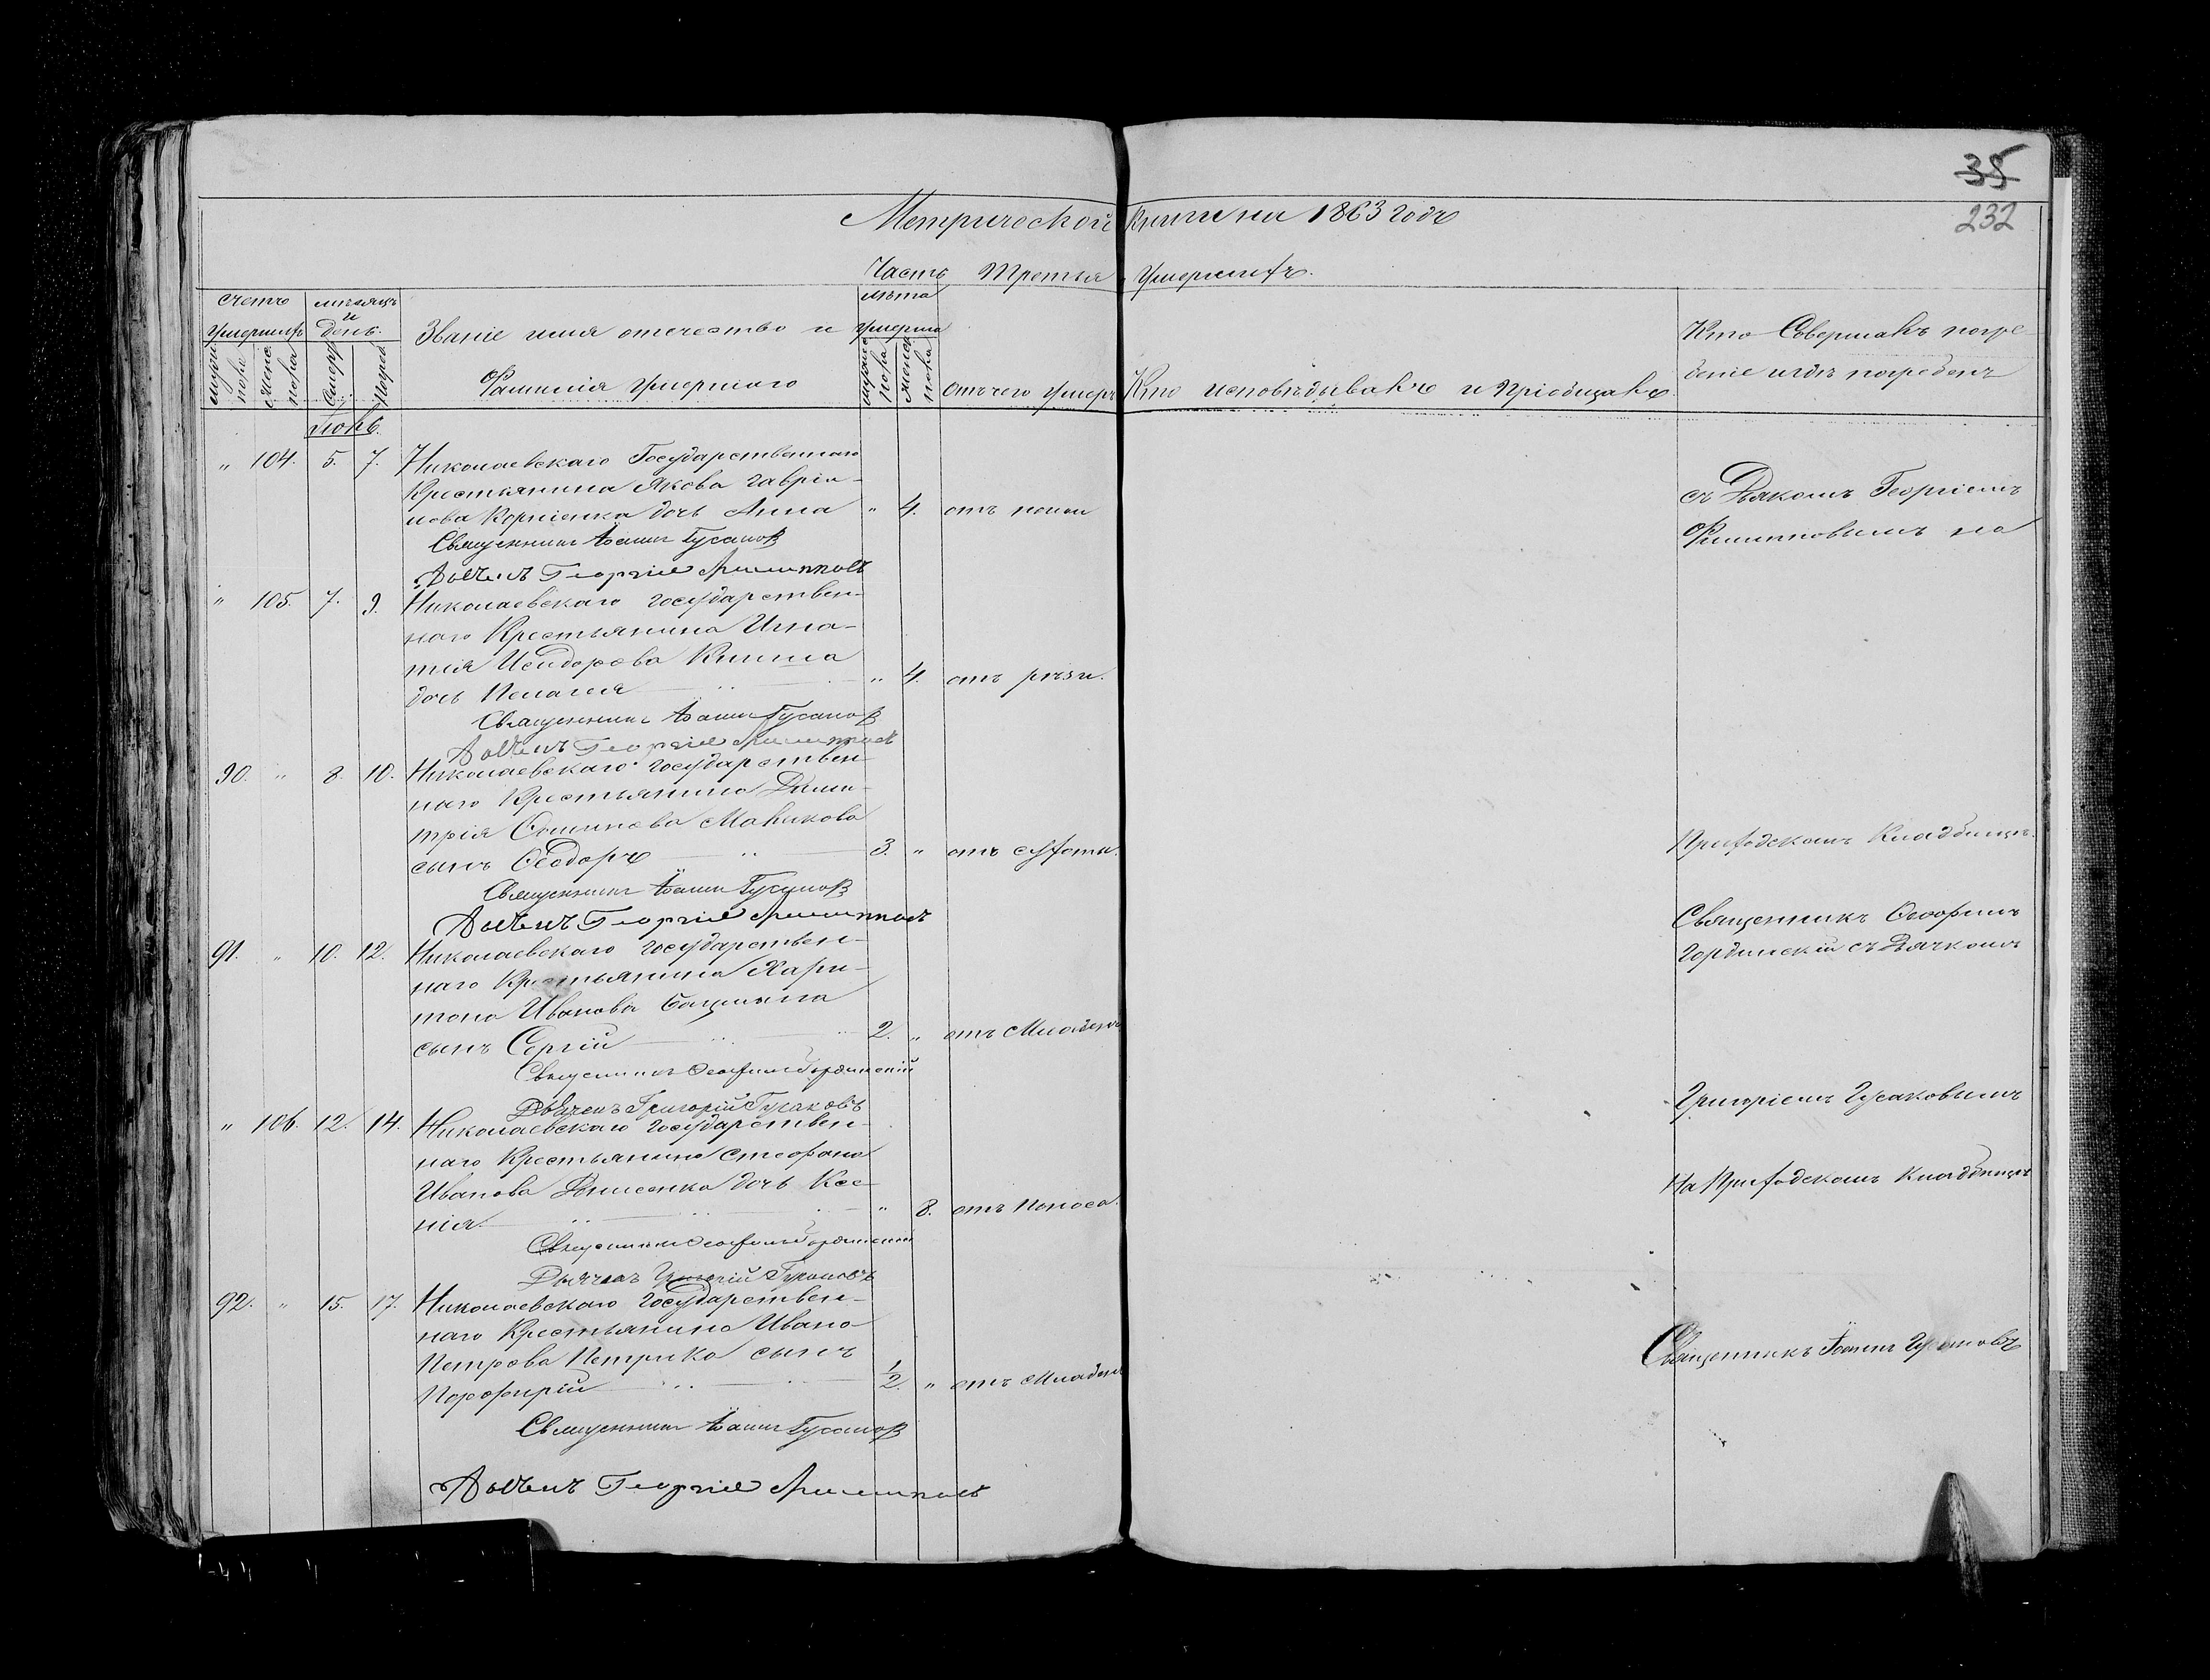 35
232
Метрической книги на 1863 годъ
Часть Третья Умершихъ.
счетъ
умершихъ
мужеска
пола
женска
пола
мѣсяцъ
и
день.
Смерт.
Погреб.
Званіе имя отечество и
Фамилія умершаго
лѣта
умерша
мужеска
пола
женска
пола
отъ чего умеръ
Кто исповѣдывалъ и пріобщалъ
Кто Совершалъ погре-
беніе и гдѣ погребенъ
Іюль.
" 104. 5. 7. Николаевскаго Государственнаго
Крестьянина Якова Гаврии-
лова Корніенка дочь Анна " 4. отъ
Священникъ Іоаннъ Гусаковъ
Дьячекъ Георгій Филипповъ
съ Дьякомъ Георгіемъ
Филипповымъ на
" 105. 7. 9. Николаевскаго государствен-
наго Крестьянина Игна-
тія Исидорова Книша
дочь Пелагея " 4. отъ рѣзи.
Священникъ Іоаннъ Гусаковъ
Дьячекъ Георгій Филипповъ
90. " 8. 10. Николаевскаго государствен-
наго Крестьянина Дими-
трія Осипова
сынъ Ѳеодоръ 3. " отъ сухоты.
Священникъ Іоаннъ Гусаковъ
Дьячекъ Георгій Филипповъ
Приходскомъ Кладбищѣ.
91. " 10. 12. Николаевскаго государствен-
наго Крестьянина Хари-
тона Иванова Бацмана
сынъ Сергій 2. " отъ Младенч
Священникъ Ѳеофилъ Гординскій
Дьячекъ Григорій Гусаковъ
Священникъ Ѳеофилъ
Гординскій съ Дьячкомъ
Григоріемъ Гусаковымъ
" 106. 12. 14. Николаевскаго государствен-
наго Крестьянина Стефана
Иванова Денисенка дочь Ксе-
нія. " 8. отъ Поноса.
Священникъ Ѳеофилъ Гординскій
Дьячекъ Григорій Гусаковъ
На Приходскомъ Кладбищѣ
92. " 15. 17. Николаевскаго государствен-
наго Крестьянина Ивана
Петрова Петрика сынъ
Порфирій 1/2. " отъ Младенч
Священникъ Іоаннъ Гусаковъ
Дьячекъ Георгій Филипповъ
Священникъ Іоаннъ Гусаковъ